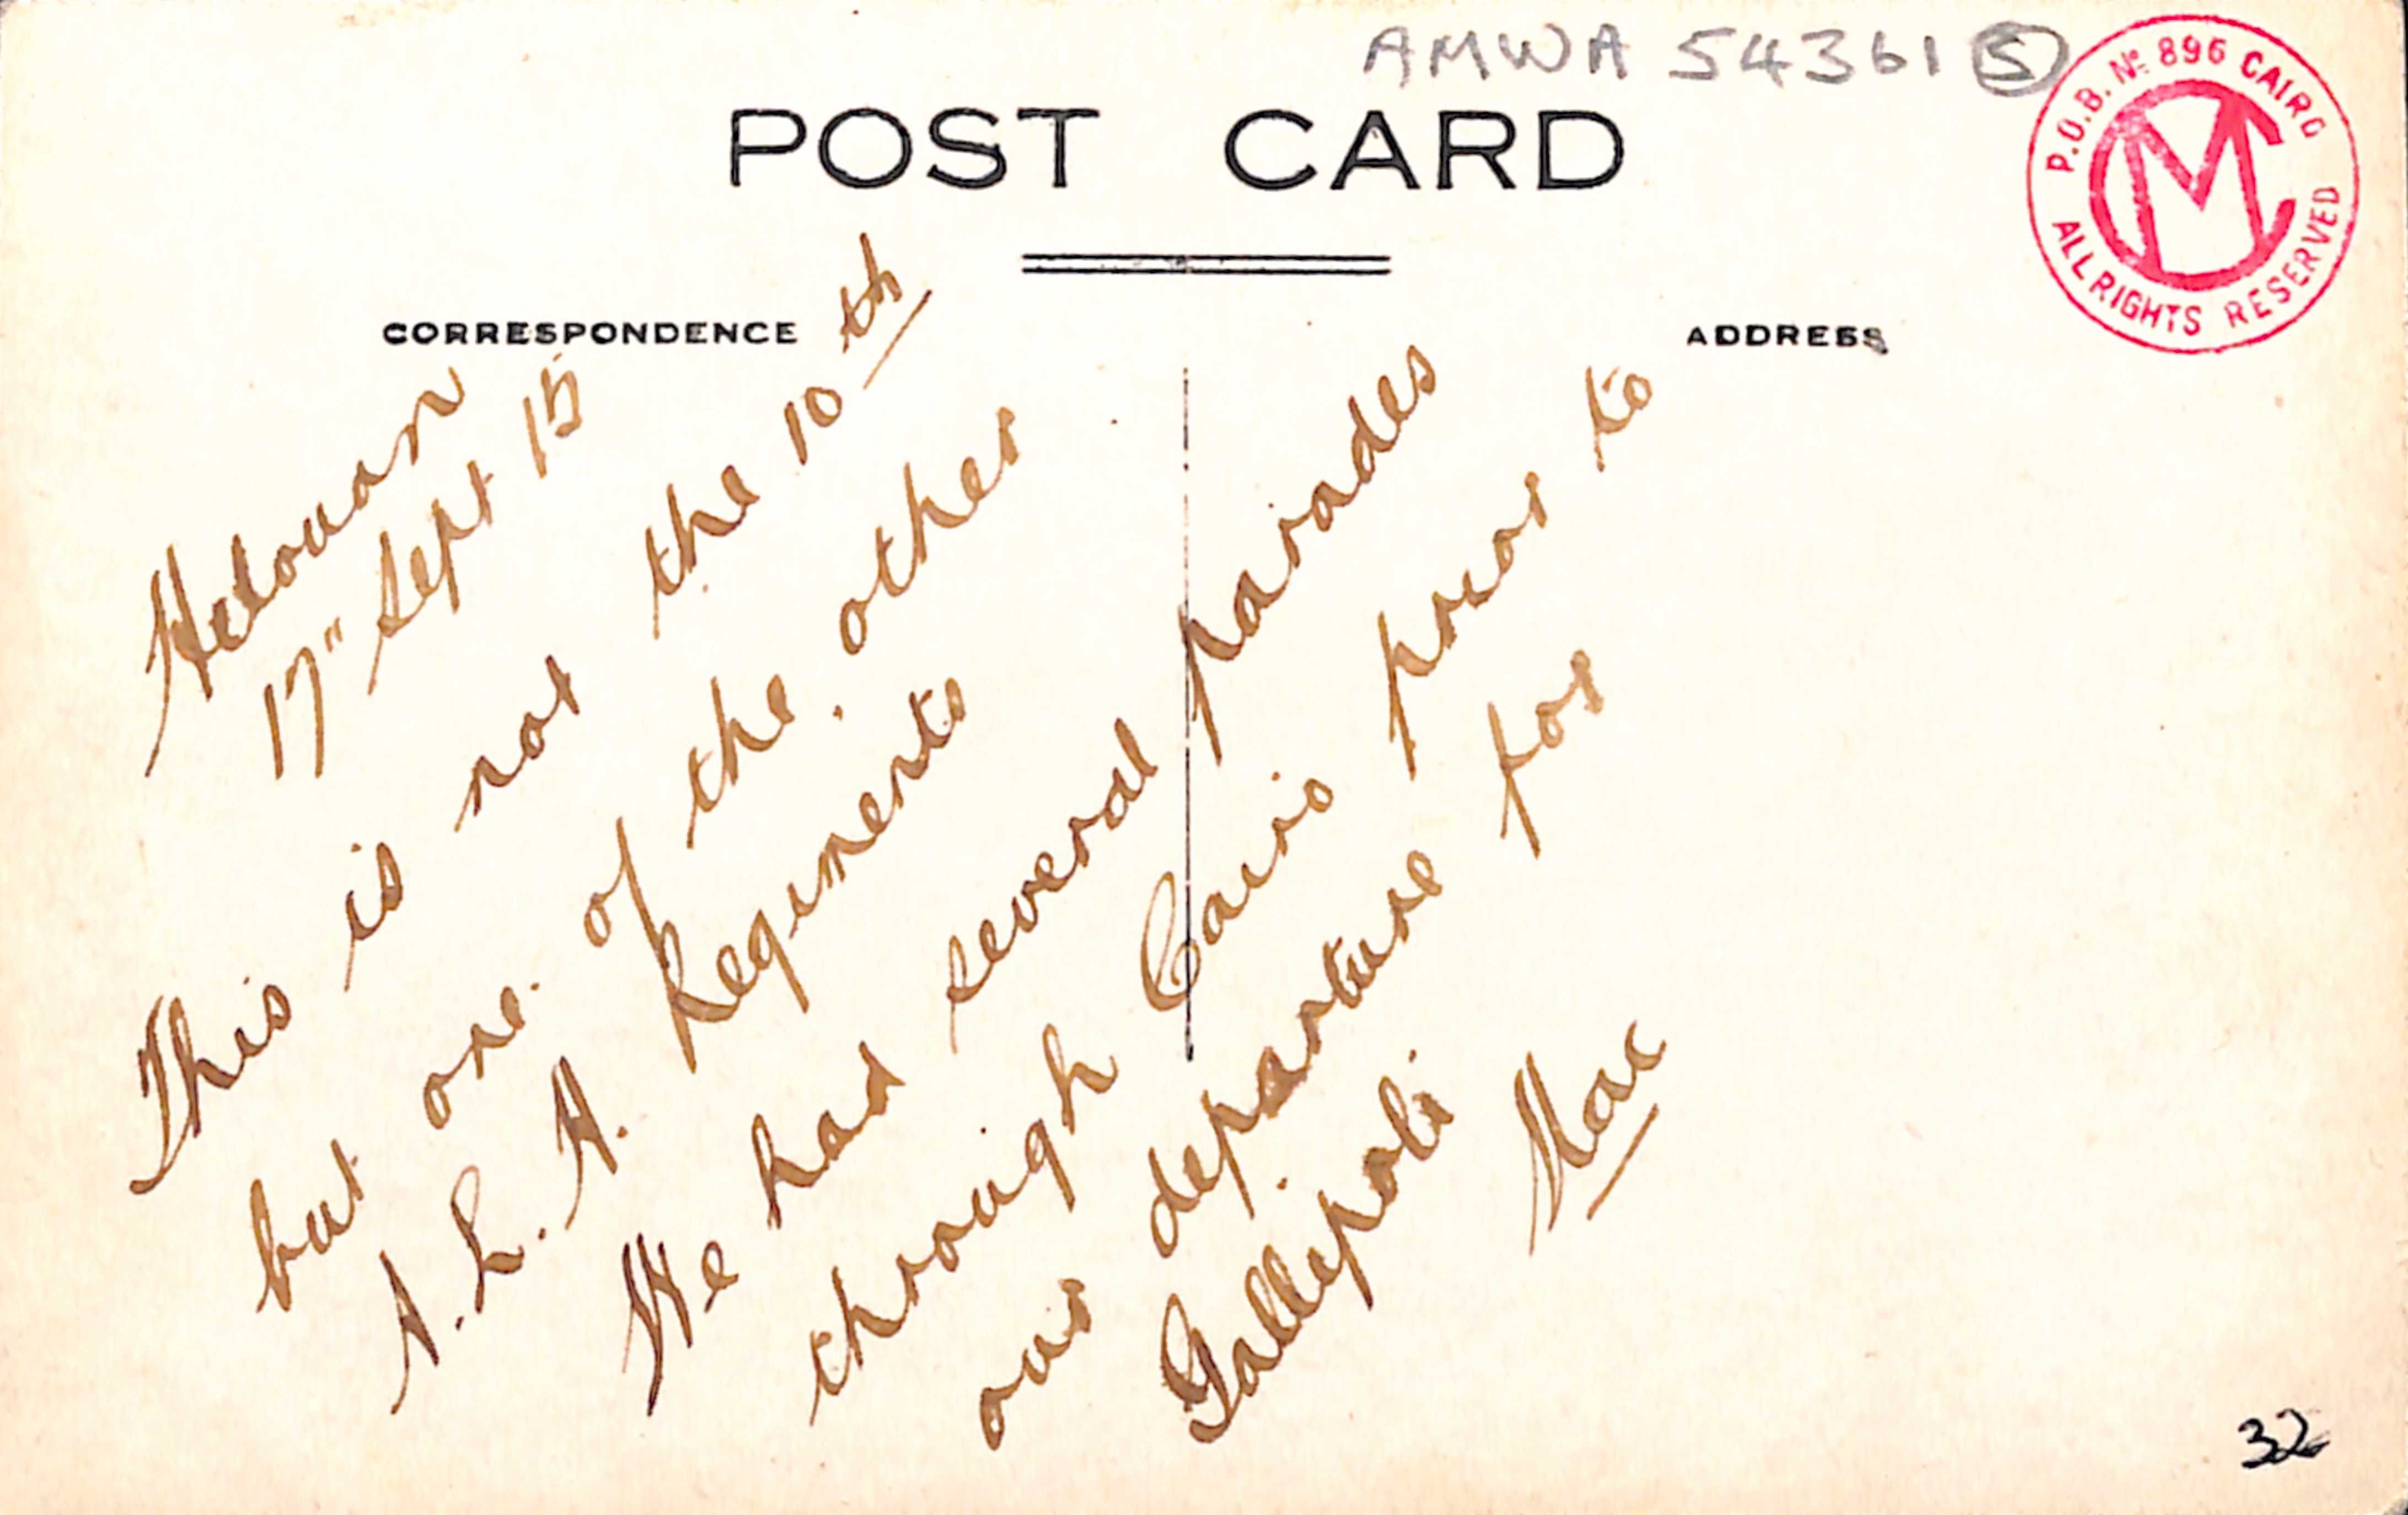 AMWA 54361 5
P.O.B. No 896 CAIRO
MC
ALL RIGHTS RESERVED
POST CARD
CORRESPONDENCE
ADDRESS
Helouan
17" Sept 15
This is not the 10th
but one of the other
A.L.H. Regiments
We had several parades
through Cairo prior to
our departure for
Gallipoli
Mac
32